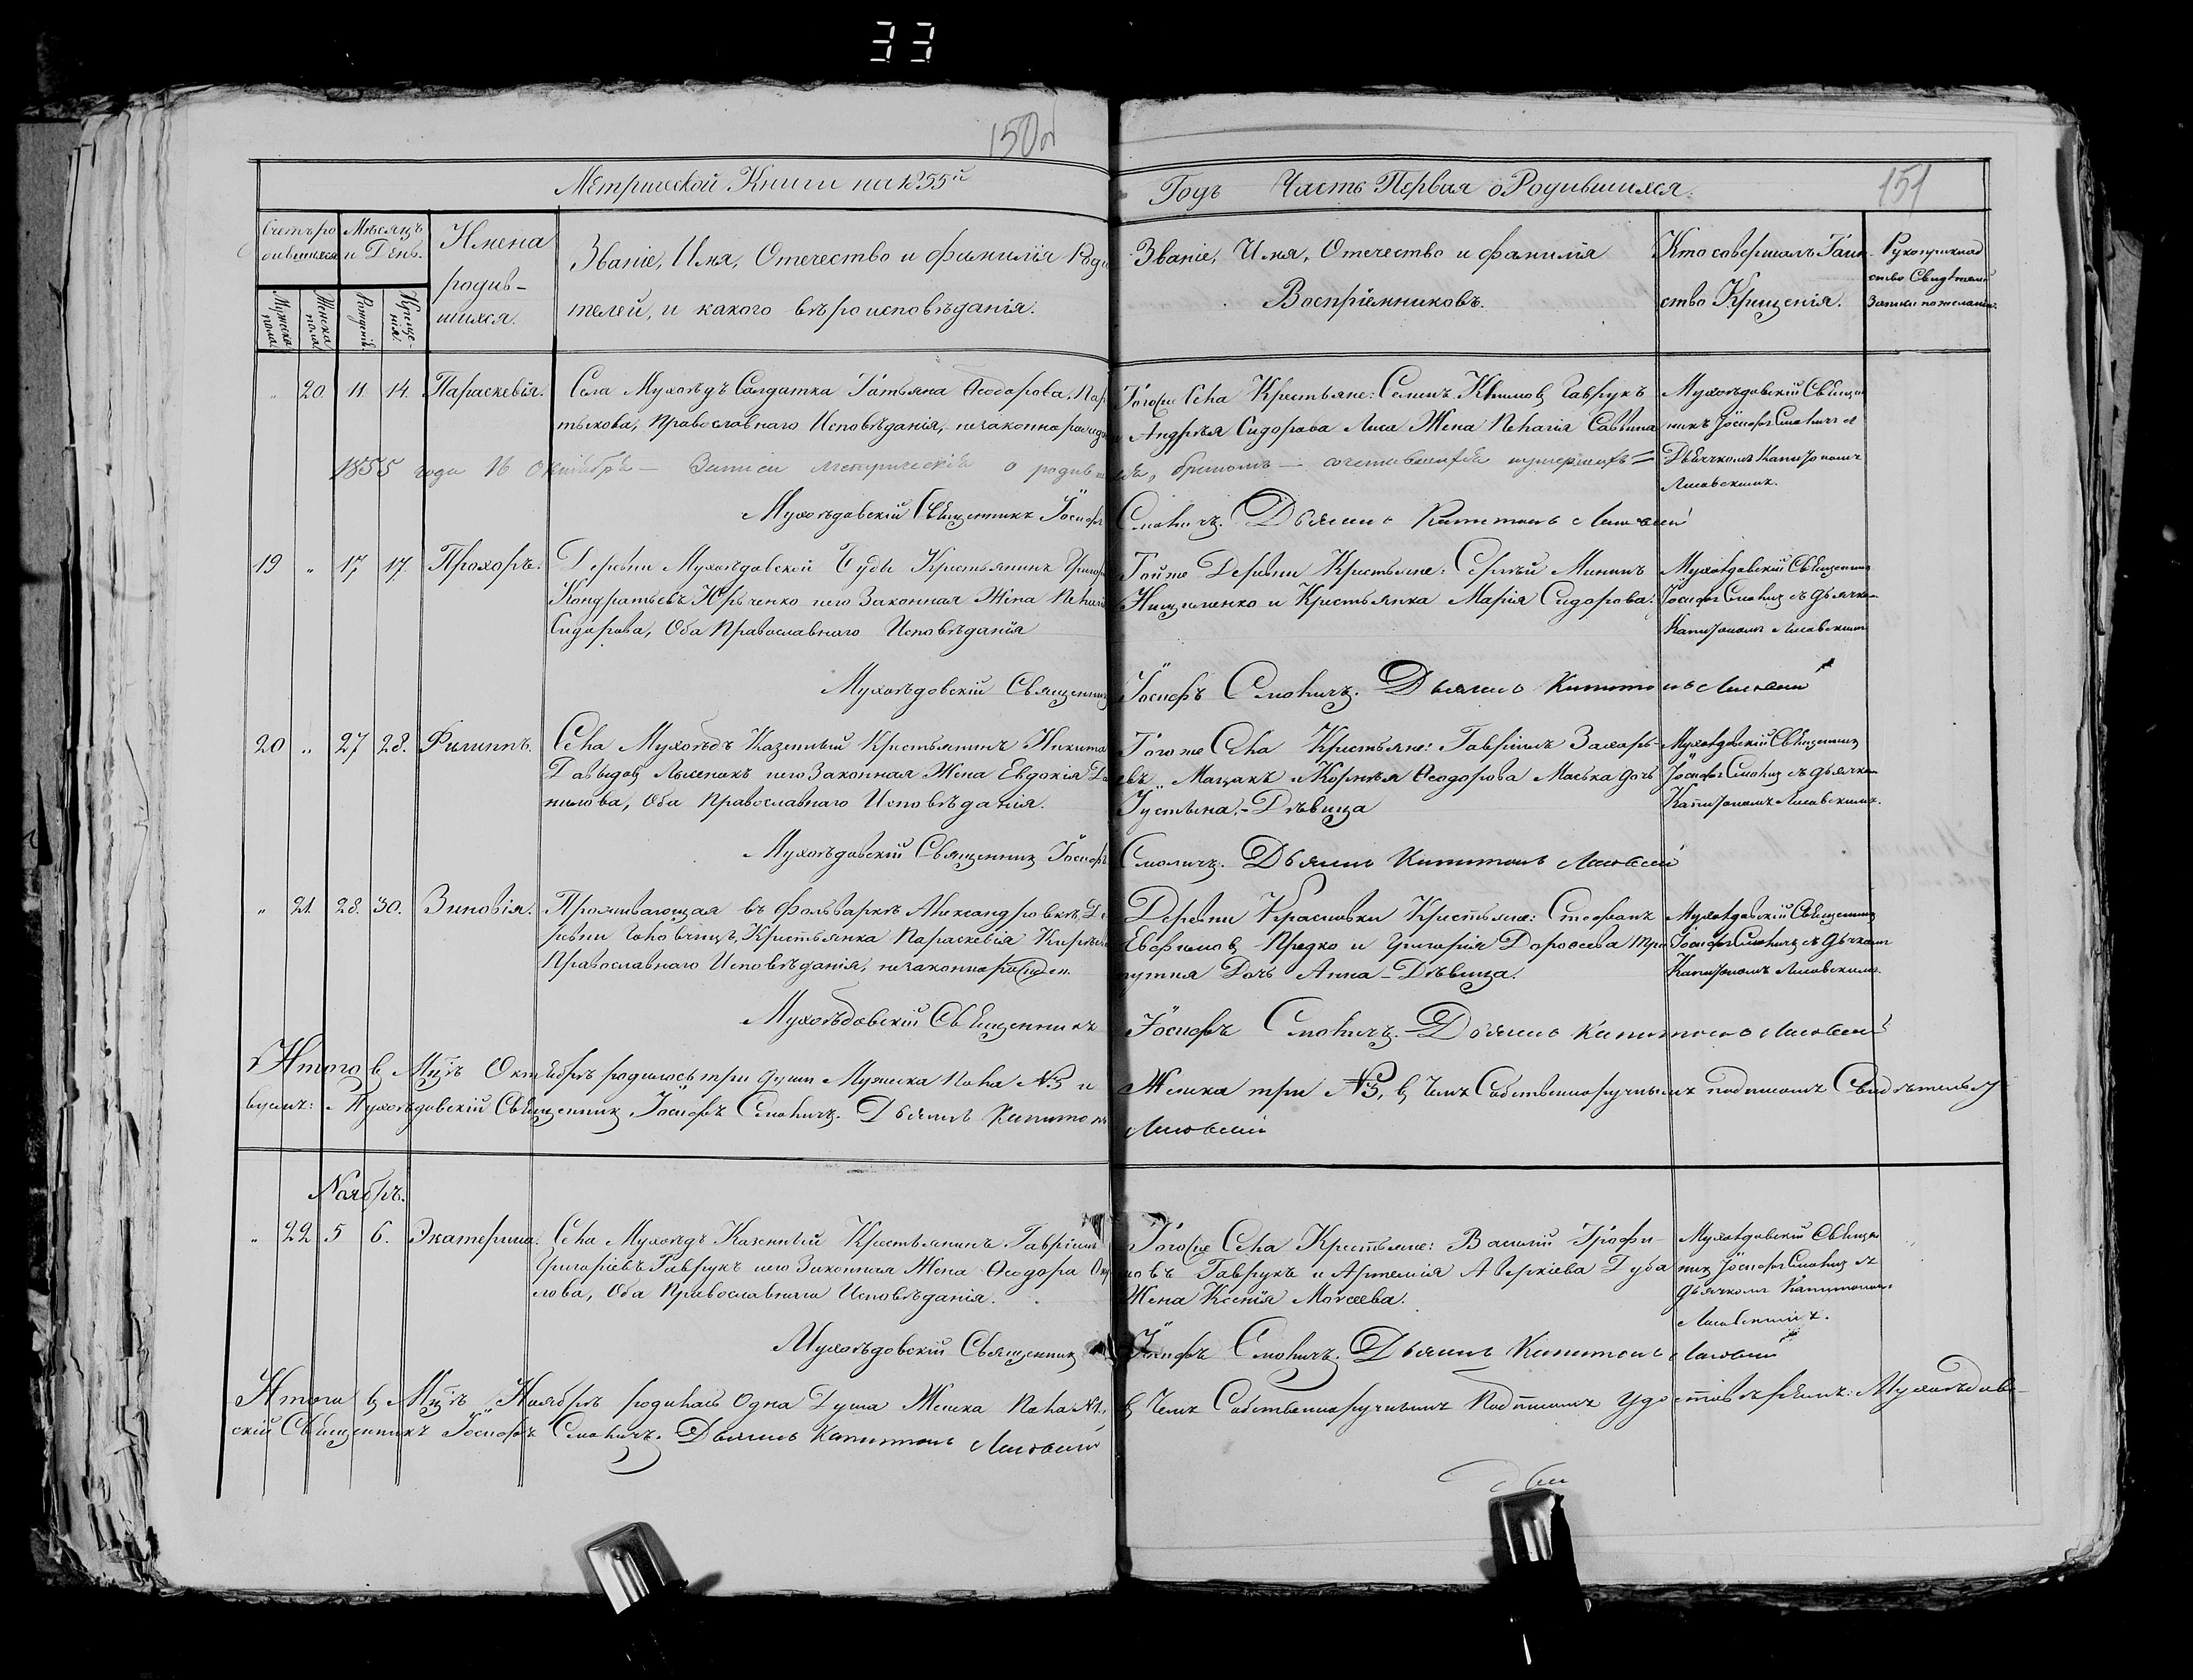 33
150об
151
Метрической Книги на 1855й
Годъ Часть Первая о Родившихся.
Счетъ ро
дившихся
Мѣсяцъ
и День.
Мужска
пола
Женска
пола
Рожденія.
Креще-
нія.
Имена
родив-
шихся.
Званіе, Имя, Отечество и фамилія Роди
телей, и какого вѣроисповѣданія.
Званіе, Имя, Отечество и фамилія
Воспріемниковъ.
Кто совершалъ Таин
ство Крещенія.
Рукоприклад
ство Свидѣтелей
Записи по желанію.
„ 20. 11. 14. Параскевія.
Села Мухоѣдъ Салдатка Татьяна Ѳеодорова
православнаго Исповѣданія, незаконнорожден
Тогоже Села Крестьяне: Климовъ Гаврукъ
и Андрѣя Сидорова Лиса Жена Пелагія Саввина
Мухоѣдовскій Священ
никъ Іосифъ Смоличъ съ
Дьячкомъ Капитономъ
Лисовскимъ.
1855 года 16 Октября – Записи метрическія о родив
Мухоѣдовскій Священникъ Іосифъ Смоличъ. Дьячекъ Капитонъ Лисовскій
19 „ 17. 17. Прохоръ.
Деревни Мухоѣдовской Буды Крестьянинъ Григорій
Кондратьевъ его Законная Жена Пелагія
Сидорова, Оба Православнаго Исповѣданія
Тойже Деревни Крестьяне: Сергѣй Мининъ
Нищименко и Крестьянка Марія Сидорова.
Мухоѣдовскій Священникъ
Іосифъ Смоличъ съ дьячком
Капитономъ Лисовскимъ
Мухоѣдовскій Священникъ Іосифъ Смоличъ. Дьячекъ Капитонъ Лисовскій
20 „ 27 28. Филиппъ.
Села Мухоѣдъ Казенный Крестьянинъ Никита
Давыдовъ его Законная Жена Евдокія Да
нилова, Оба Православнаго Исповѣданія.
Тогоже Села Крестьяне: Гавріилъ Захарь-
евъ Мацакъ и Корнѣя Ѳеодорова Маська дочь
Іустына, – Дѣвица
Мухоѣдовскій Священникъ
Іосифъ Смоличъ съ дьячком
Капитономъ Лисовскимъ.
Мухоѣдовскій Священникъ Іосифъ Смоличъ. Дьячекъ Капитонъ Лисовскій
„ 21. 28. 30. Зиновія.
Проживающая въ фольваркѣ Александровкѣ, Де
ревни Крестьянка Параскевія
Православнаго Исповѣданія, незаконнорожден.
Деревни Красновки Крестьяне: Стефанъ
Евфимовъ Предко и Григорія Дороѳеева
Дочь Анна – Дѣвица.
Мухоѣдовскій Священникъ
Іосифъ Смоличъ съ дьячкомъ
Капитономъ Лисовскимъ.
Мухоѣдовскій Священникъ Іосифъ Смоличъ. Дьячекъ Капитонъ Лисовскій
Итого въ Мцѣ Октябрѣ родилось три души Мужска Пола №3 и Женска три №3, въ чемъ Собственоручнымъ подписомъ Свидѣтельст
вуемъ: Мухоѣдовскій Священникъ Іосифъ Смоличъ. Дьячекъ Капитонъ Лисовскій
Ноябрь.
„ 22 5 6. Экатерина.
Села Мухоѣдъ Казенный Крестьянинъ Гавріилъ
Григоріевъ Гаврукъ его Законная Жена Ѳеодора
лова, Оба Православнаго Исповѣданія.
Тогоже Села Крестьяне: Василій Трофи-
мовъ Гаврукъ и Артемія Аверкіева Дуба
Жена Ксенія Моѵсеева.
Мухоѣдовскій Священ
никъ Іосифъ Смоличъ съ
дьячкомъ Капитоном
Лисовскимъ.
Мухоѣдовскій Священникъ Іосифъ Смоличъ. Дьячекъ Капитонъ Лисовскій
Итого въ Мцѣ Ноябрѣ родилась Одна Душа Женска Пола №1. въ чемъ Собственноручнымъ Подписомъ Удостовѣряемъ: Мухоѣдов-
скій Священникъ Іосифъ Смоличъ. Дьячекъ Капитонъ Лисовскій